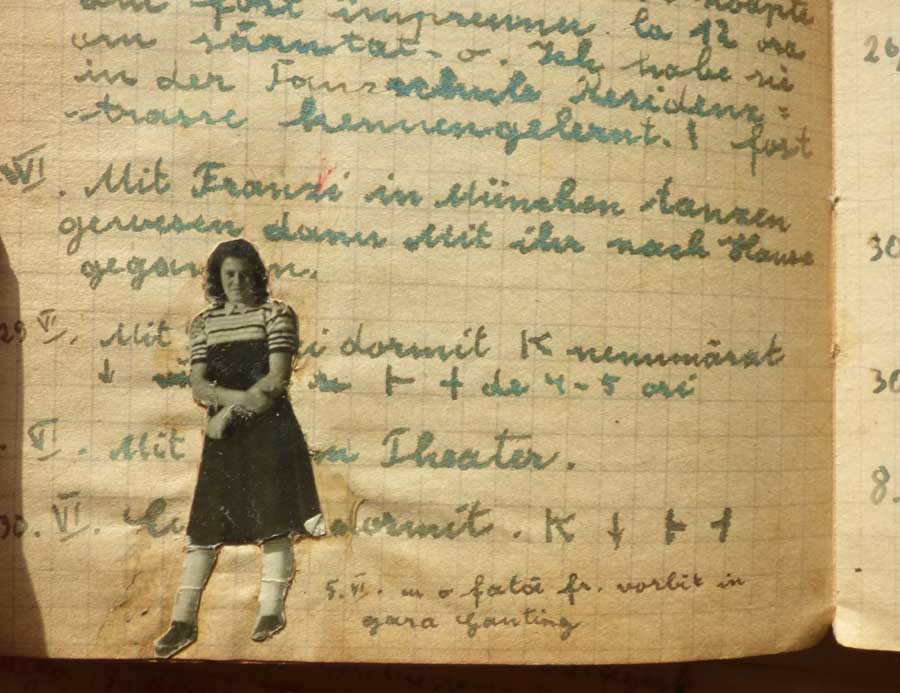 am fost împreună. la 12 ora noapte
am sărutat-o. Ich habe sie
in der Tanzschule Residenz=
trasse kennengelernt. ! fost
VI. Mit Franzi in München tanzen
gewesen dann Mit ihr nach Hause
gegan n.
29 VI. Mit i dormit K nenumărat
↓ ⊢ + de 4-5 ori
VI. Mit Theater.
30. VI. dormit. K ↓ ⊢ +
5. VI. o fată fr. vorbit in
gara Gauting
26
30
30
8.